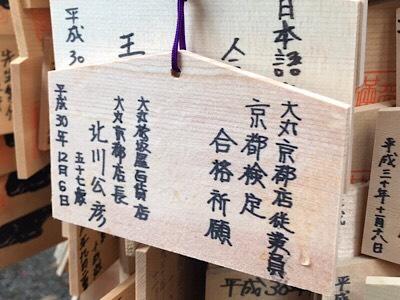 大丸京都店従業員
京都検定
合格祈願
大丸松坂屋百貨店
大丸京都店長
北川公彦
五十七歳
平成30年12月6日
日本語
平成30
王
平成三十年十一月八日
平成30